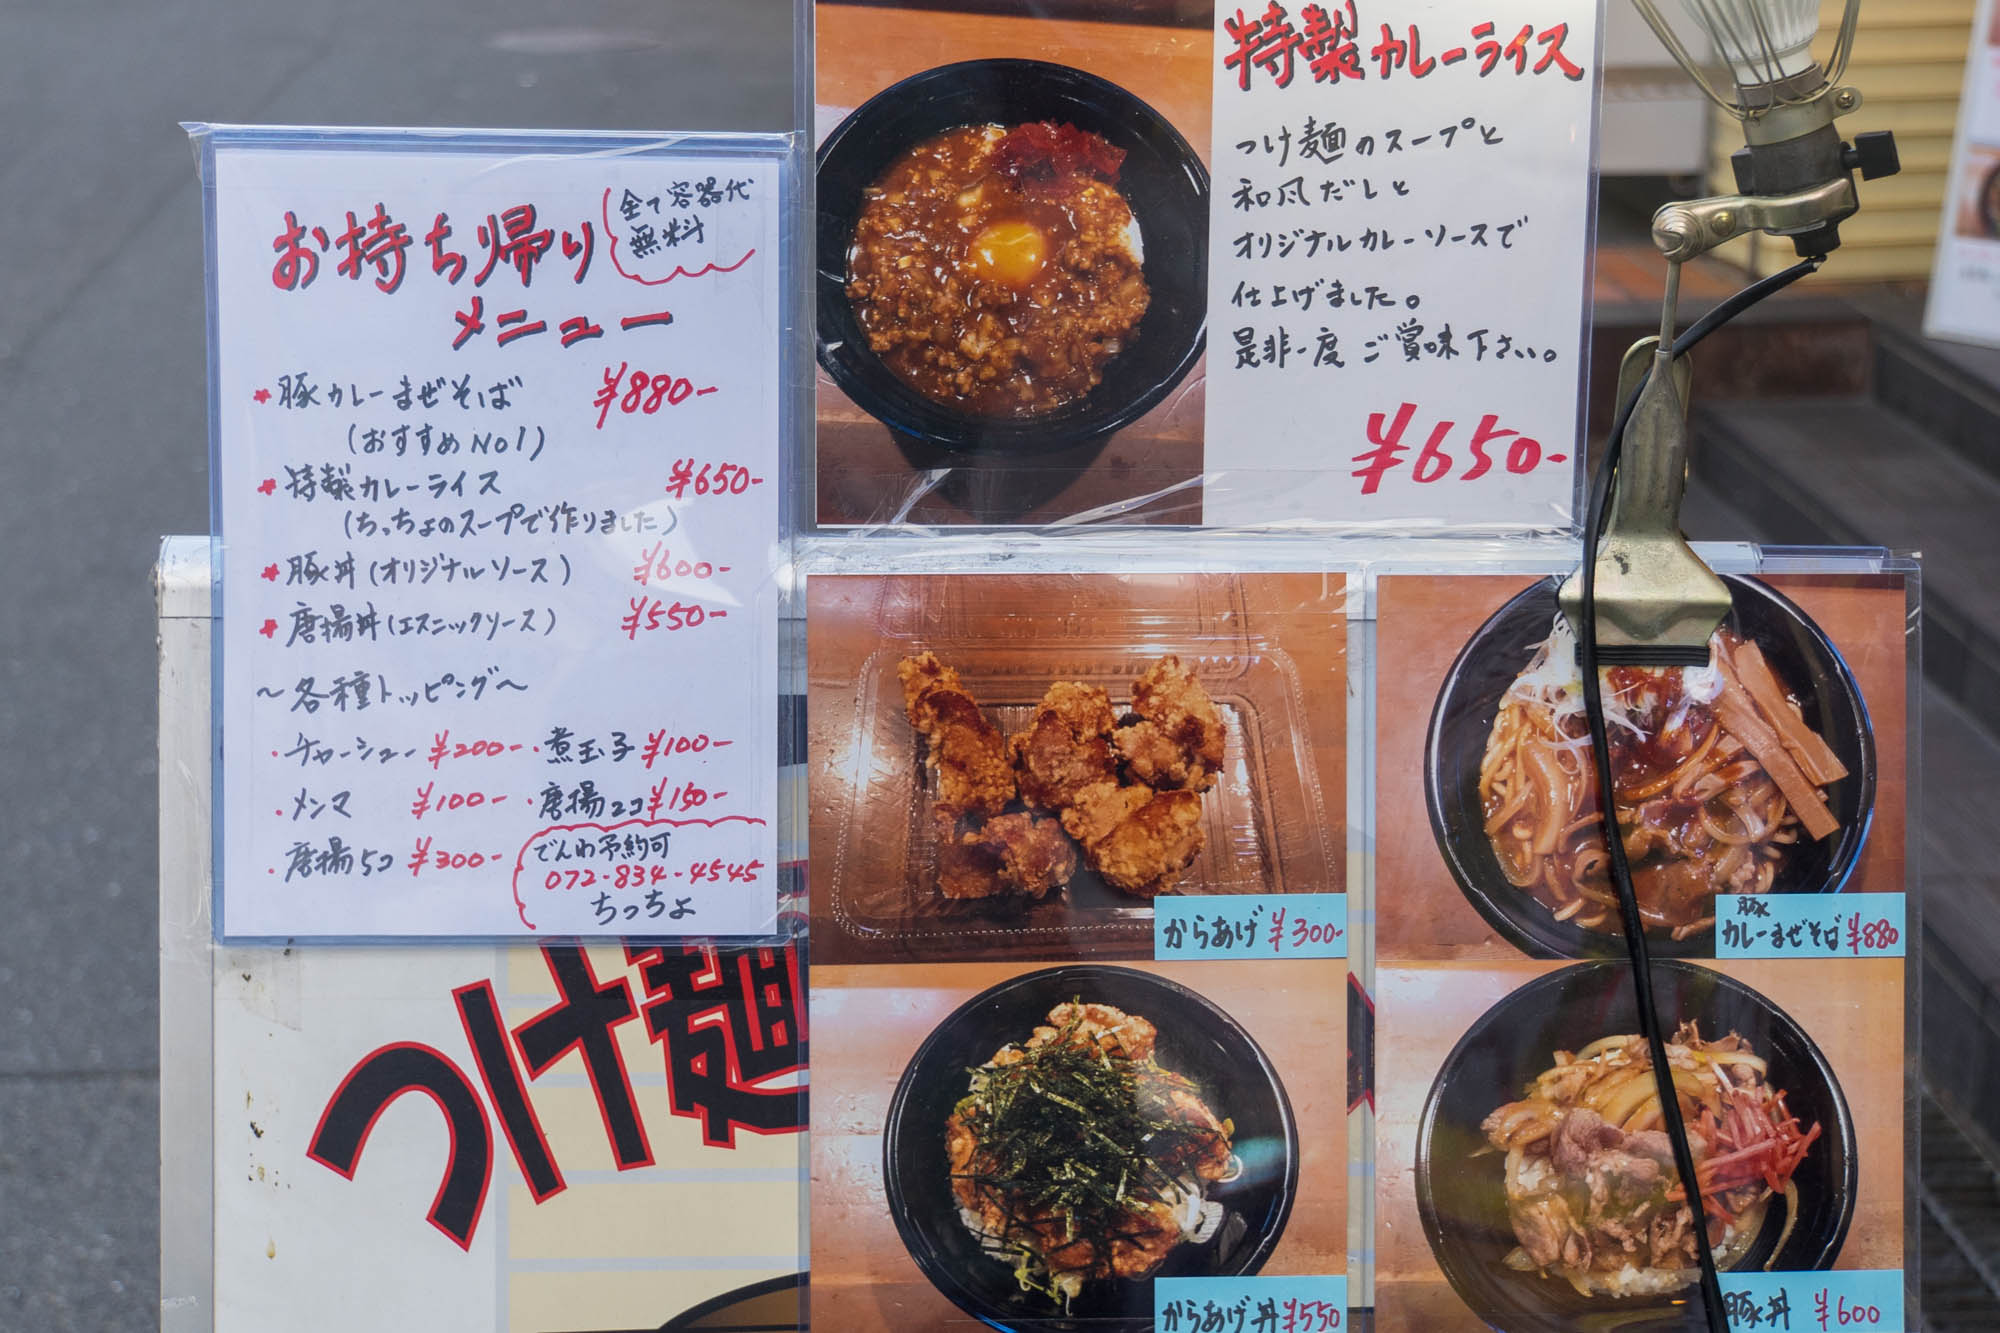 お持ち帰り
メニュー
全て容器代
無料
★豚カレーまぜそば ¥880-
(おすすめNo1)
★特製カレーライス ¥650-
(ちっちょのスープで作りました)
★豚丼(オリジナルソース) ¥600-
★唐揚丼(エスニックソース) ¥550-
〜各種トッピング〜
・チャーシュー ¥200- ・煮玉子 ¥100-
・メンマ ¥100- ・唐揚2コ ¥150-
・唐揚5コ ¥300-
でんわ予約可
072-834-4545
ちっちょ
特製カレーライス
つけ麺のスープと
和風だしと
オリジナルカレーソースで
仕上げました。
是非一度ご賞味下さい。
¥650-
からあげ ¥300-
豚
カレーまぜそば ¥880
からあげ丼 ¥550
豚丼 ¥600
つけ麺